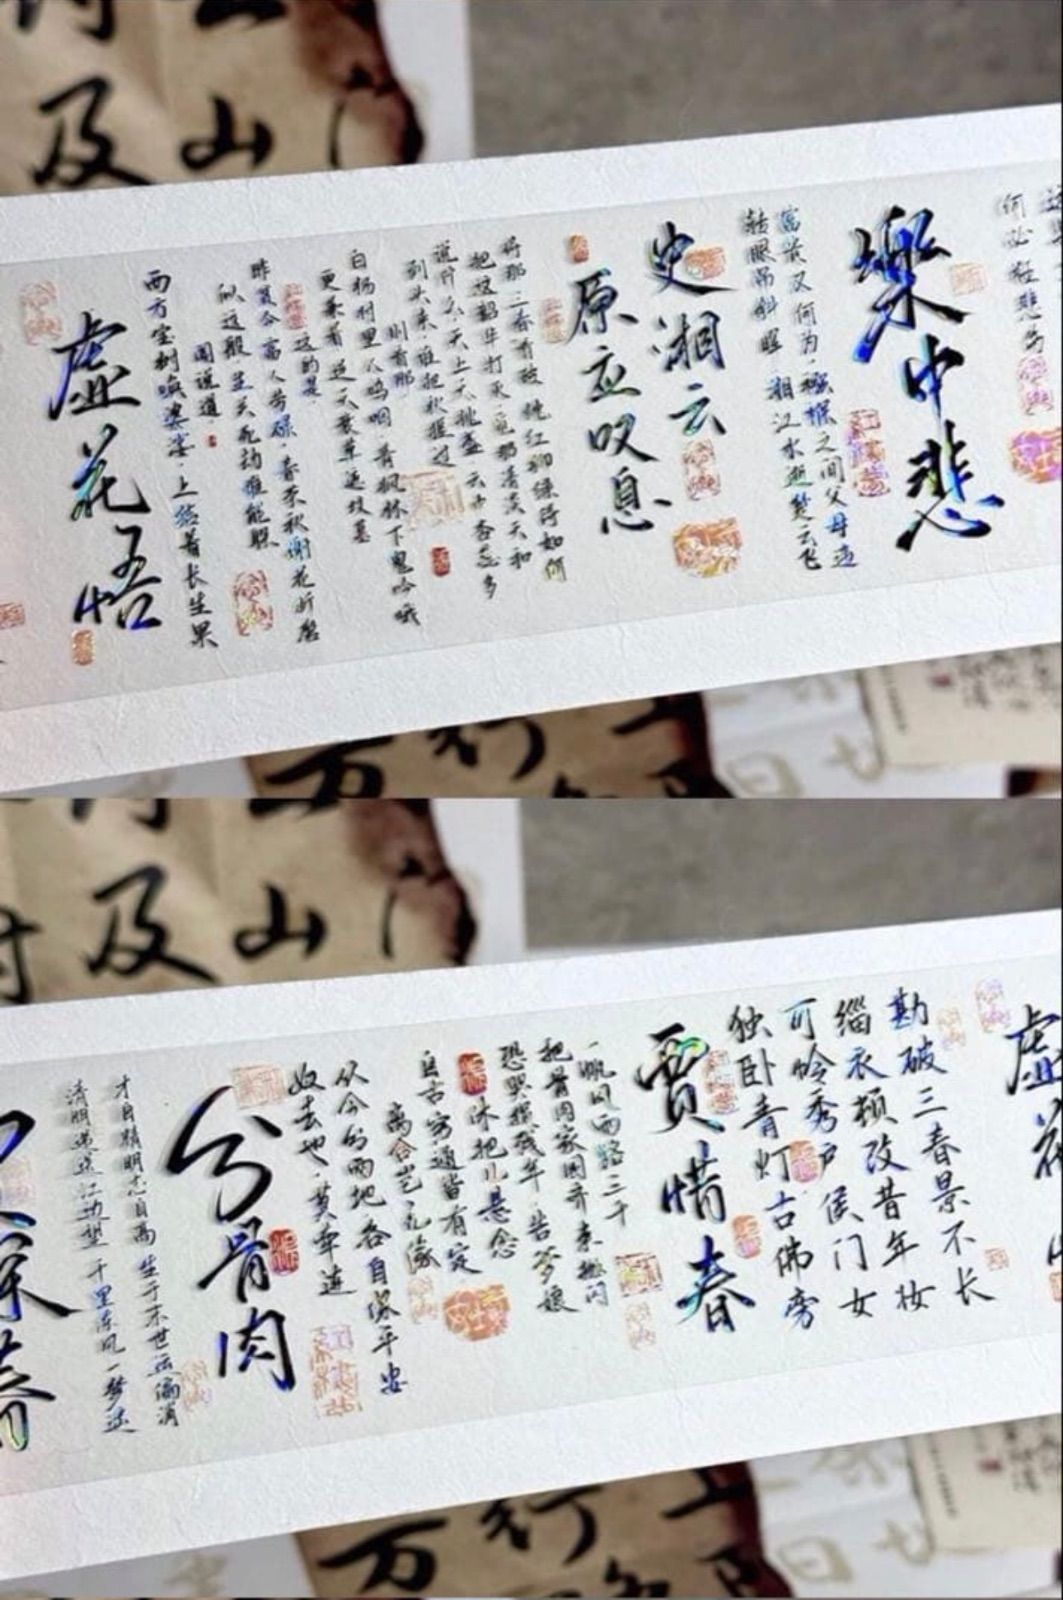 及山
何必枉悲伤
樂中悲
富贵又何为,襁褓之间父母违
转眼吊斜晖 湘江水逝楚云飞
史湘云
原应叹息
将那三春看破 桃红柳绿待如何
把这韶华打灭 觅那清淡天和
说什么,天上夭桃盛 云中杏蕊多
到头来,谁把秋捱过
则看那
白杨村里人呜咽,青枫林下鬼吟哦
更兼着 连天衰草遮坟墓
这的是
昨贫今富人劳碌,春荣秋谢花折磨
似这般 生关死劫谁能躲
闻说道
西方宝树唤婆娑,上结着长生果
虚花悟
万行
及山
虚花
勘破三春景不长
缁衣顿改昔年妆
可怜秀户侯门女
独卧青灯古佛旁
贾惜春
一帆风雨路三千
把骨肉家园齐来抛闪
恐哭损残年,告爹娘
休把儿悬念
自古穷通皆有定
离合岂无缘
从今分两地 各自保平安
奴去也,莫牵连
分骨肉
才自精明志自高 生于末世运偏消
清明涕送江边望 千里东风一梦遥
探春
万行